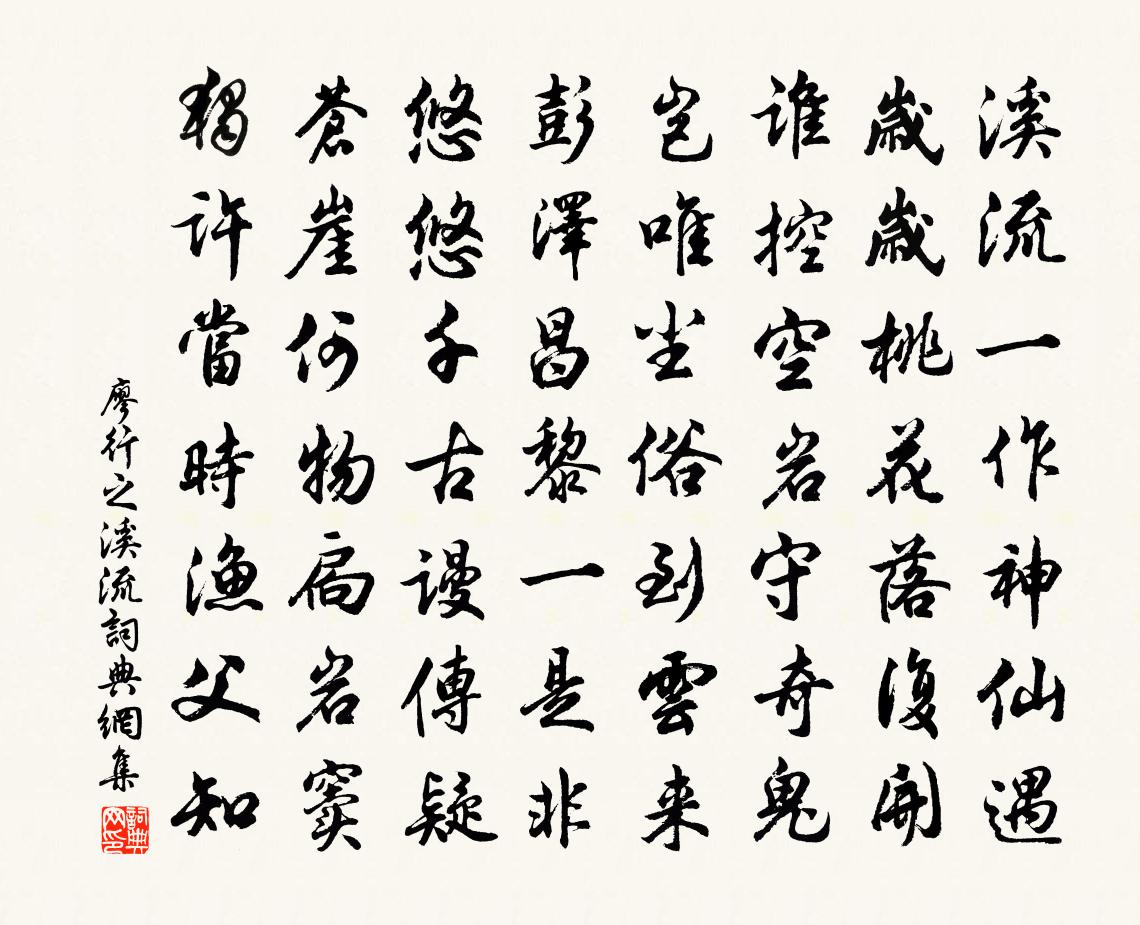 溪流一作神仙遇
歲歲桃花落復開
誰控空岩守奇鬼
豈唯尘俗到雲来
彭澤昌黎一是非
悠悠千古謾傳疑
蒼崖何物扃岩竇
獨許當時漁父知
廖行之溪流詞典網集
詞典网印